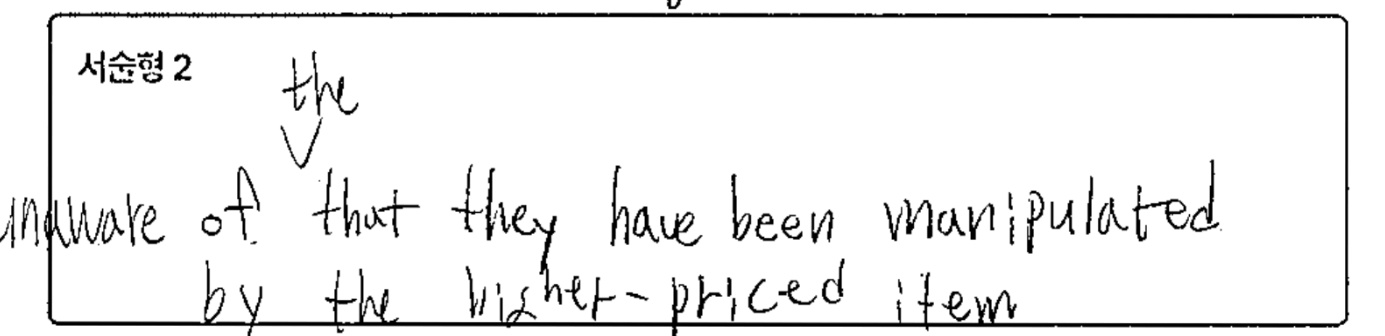 서술형 2
the
unaware of that they have been manipulated
by the higher-priced item